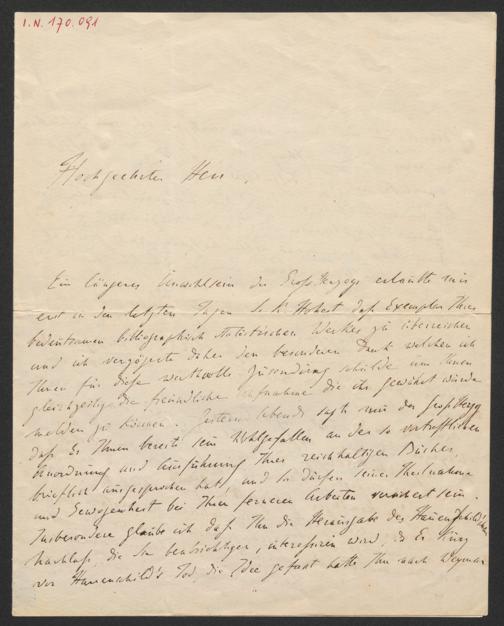 I.N. 170.091
Hochgeehrter Herr.
Ein längeres Unwohlsein des Großherzogs erlaubte mir
erst in den letzten Tagen S. K. Hoheit das Exemplar Ihres
bedeutsamen bibliographisch statistischen Werkes zu überreichen
und ich verzögerte daher den besonderen Dank welchen ich
Ihnen für diese werthvolle Zusendung schulde um Ihnen
gleichzeitig die freundliche Aufnahme die ihr gewährt wurde
melden zu können. Gestern Abends sagte mir der Großherzog
daß Er Ihnen bereits sein Wohlgefallen an des so vortrefflichen
Anordnung und Ausführung Ihres reichhaltigen Buches,
brieflich ausgesprochen hat, und Sie dürfen seiner Theilnahme
und Gewogenheit bei Ihren ferneren Arbeiten versichert sein.
Insbesondere glaube ich daß Ihn die Herausgabe des Hauenschild'schen
Nachlaß, die Sie beabsichtigen, interessiren wird, da Er kurz
vor Hauenschild's Tod, die Idee gefasst hatte Ihn nach Weymar